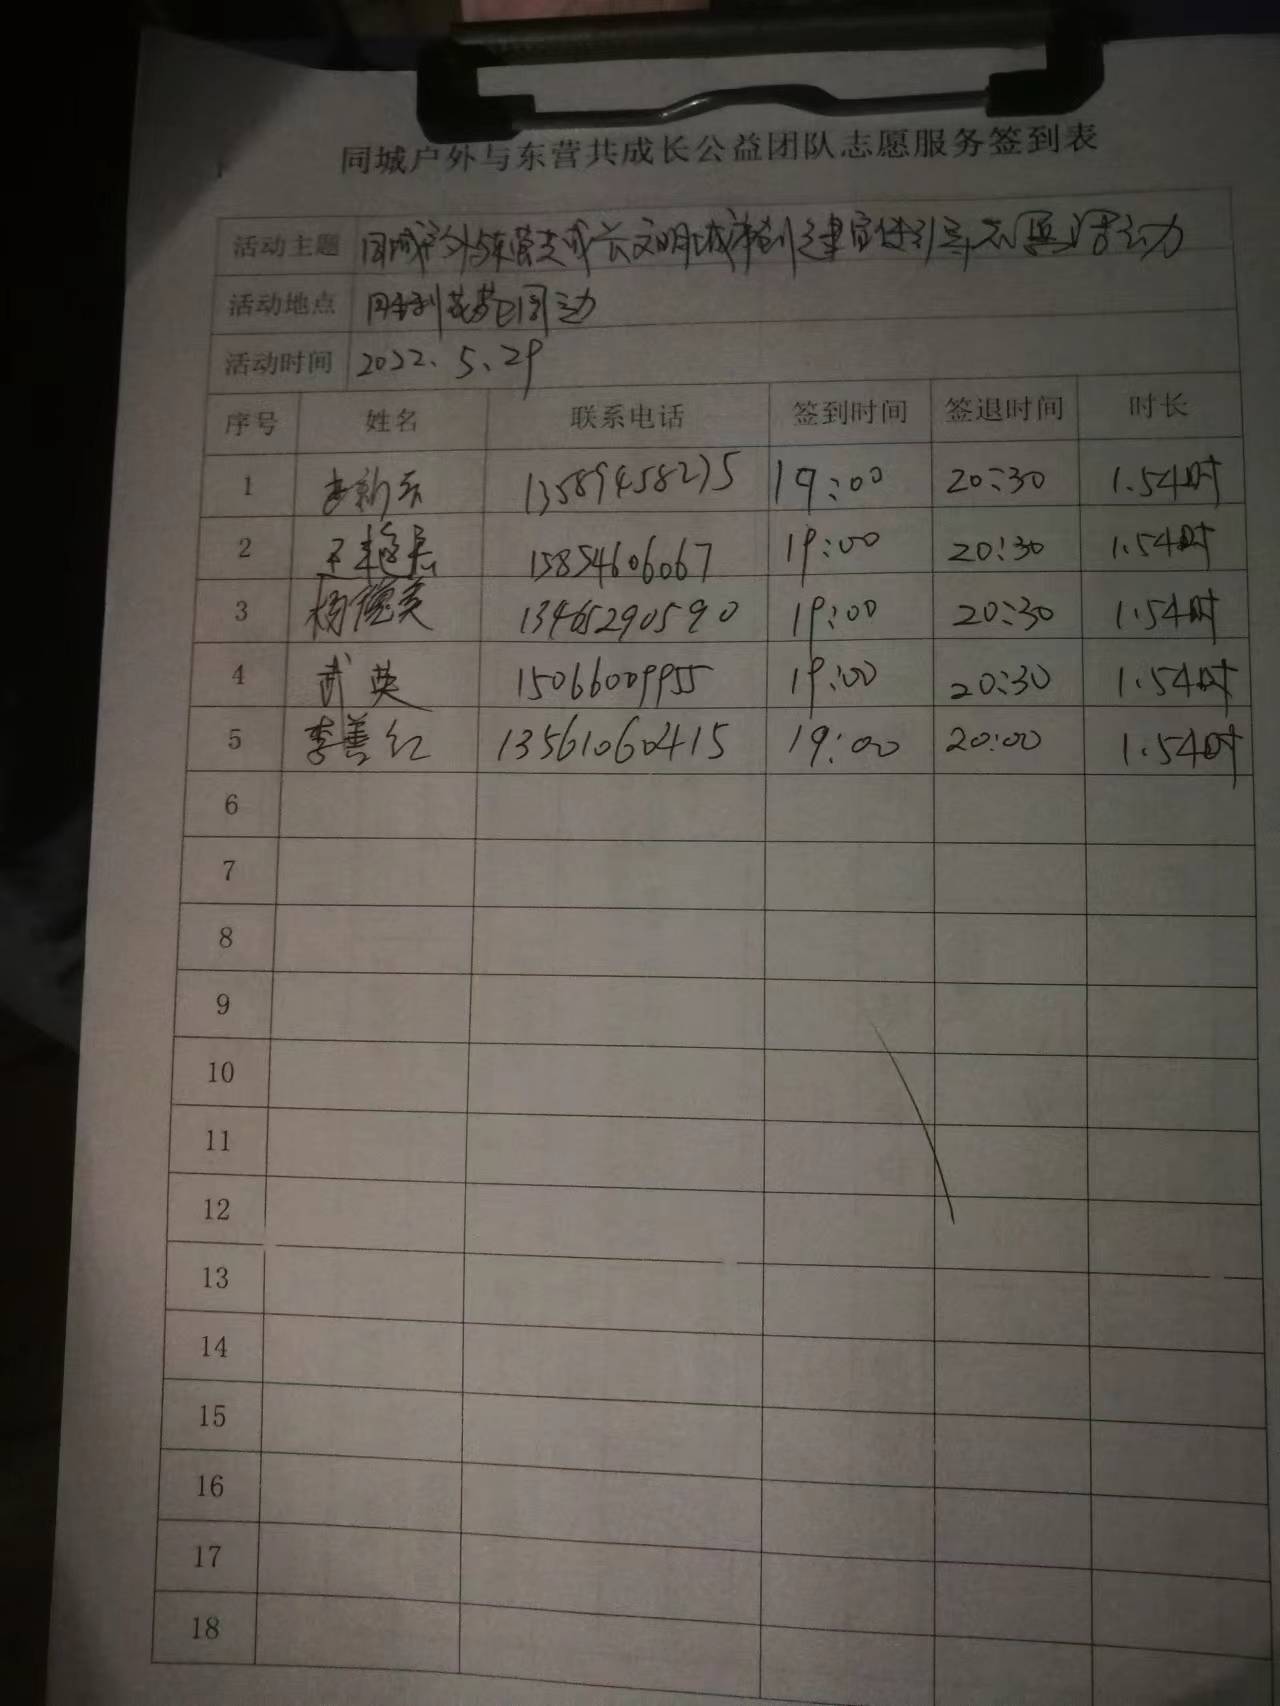 同城户外与东营共成长公益团队志愿服务签到表
活动主题 同城户外与东营共成长文明城市创建宣传引导志愿活动
活动地点 胜利花苑周边
活动时间 2022.5.29
序号 姓名 联系电话 签到时间 签退时间 时长
1 李新东 13589458275 19:00 20:30 1.5小时
2 王艳 15854606067 19:00 20:30 1.5小时
3 杨德英 13465290590 19:00 20:30 1.5小时
4 武英 15066009955 19:00 20:30 1.5小时
5 李善红 13561060415 19:00 20:00 1.5小时
6
7
8
9
10
11
12
13
14
15
16
17
18